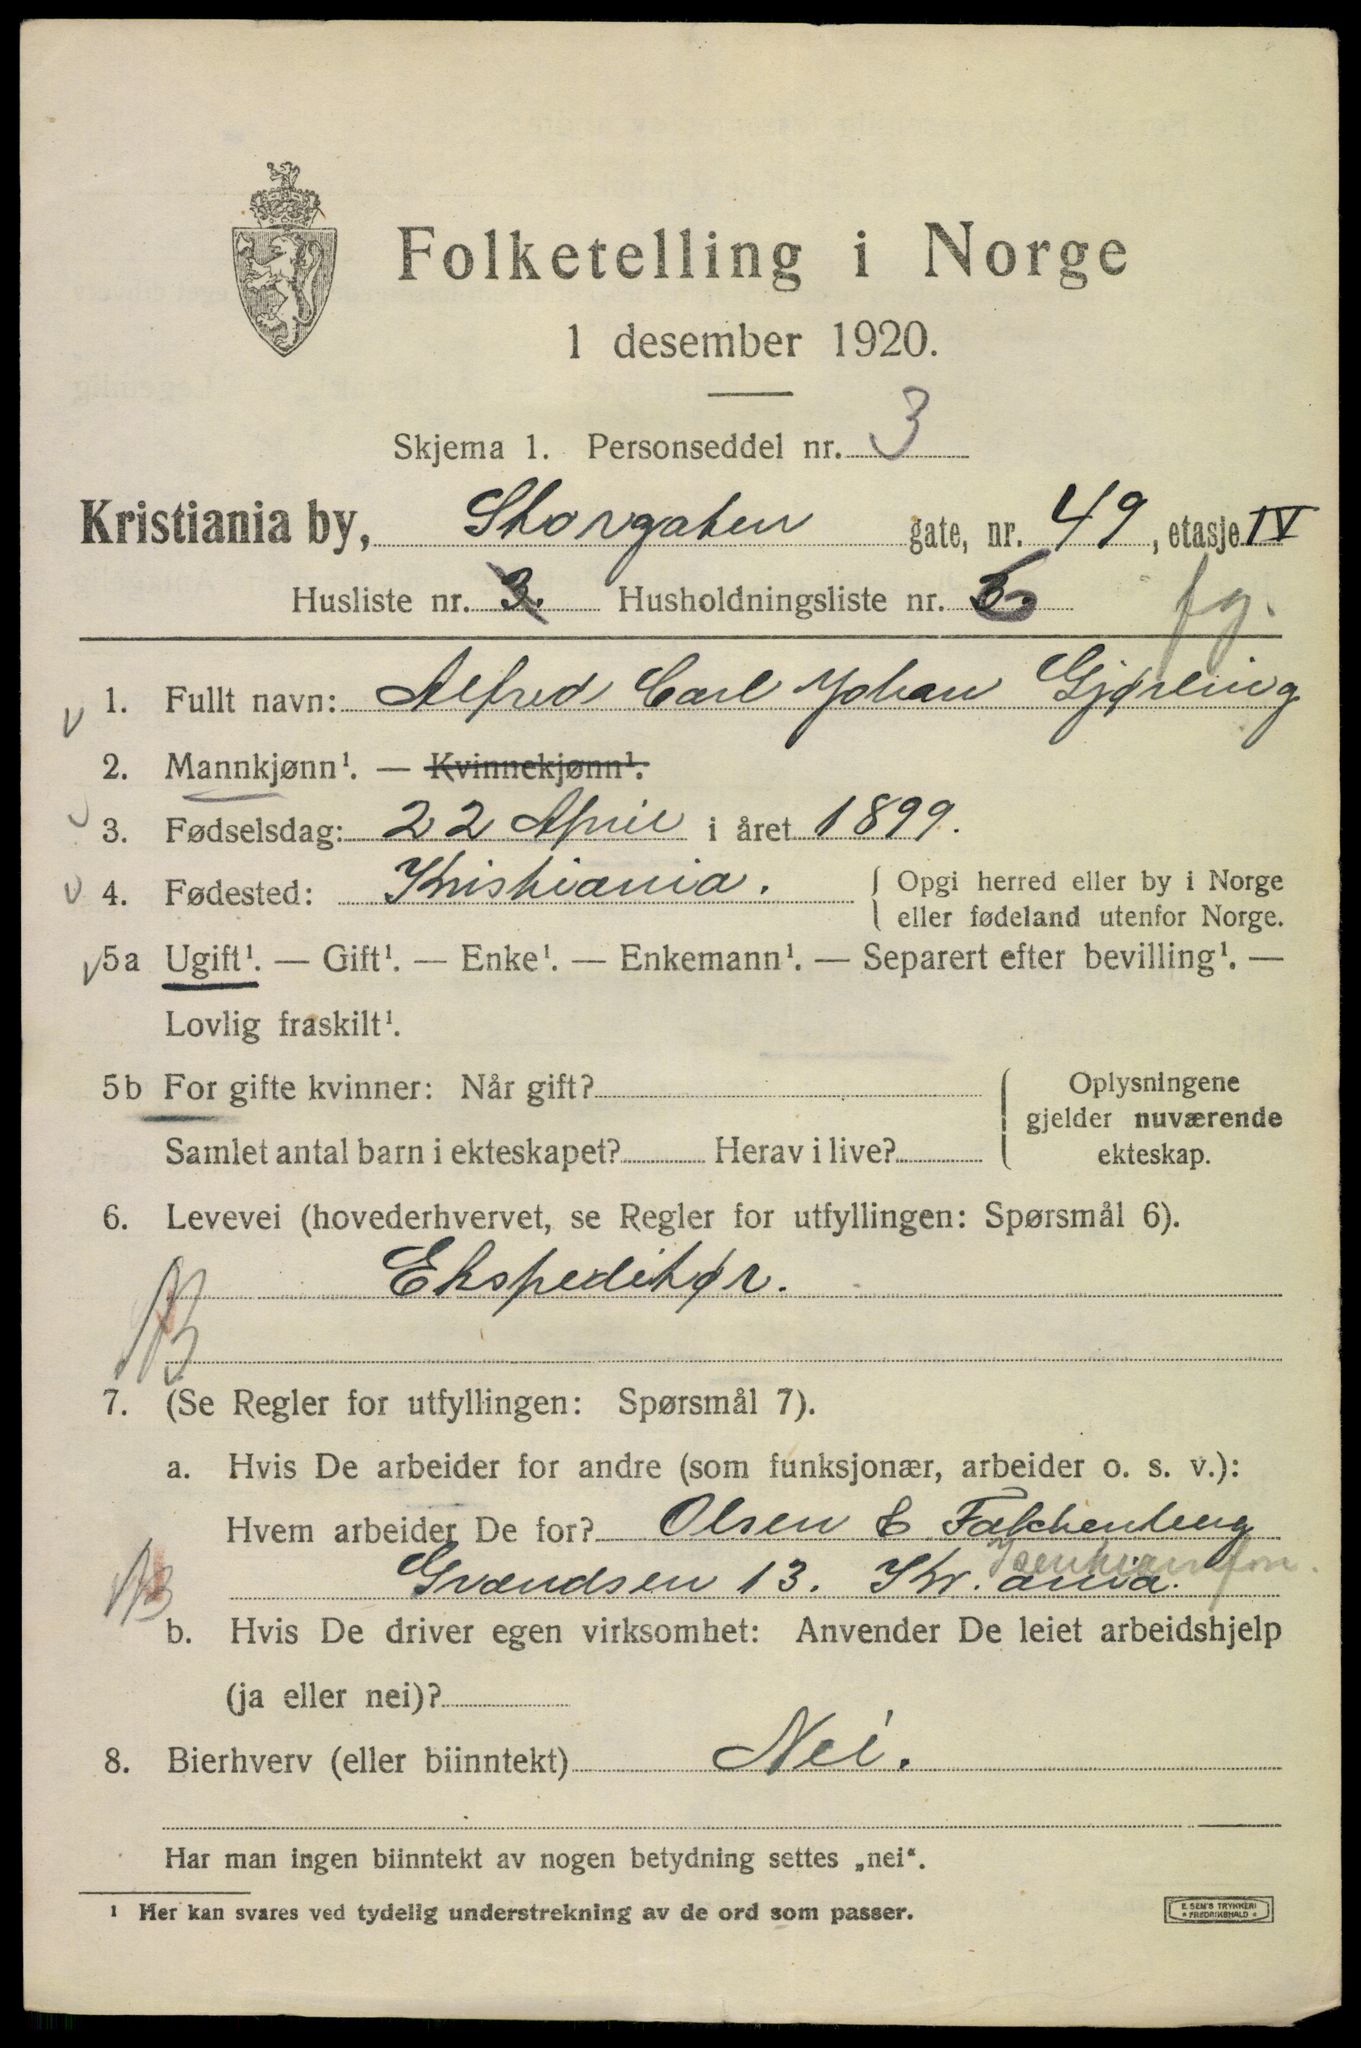 Folketelling i Norge
1 desember 1920.
Skjema 1. Personseddel nr. 3
Kristiania by, Storgaten gate, nr. 49, etasje IV
Husliste nr. 3. Husholdningsliste nr.
fg.
1. Fullt navn: Alfred Carl Johan Gjørling
2. Mannkjønn¹. — Kvinnekjønn¹.
3. Fødselsdag: 22 April i året 1899.
4. Fødested: Kristiania. Opgi herred eller by i Norge
eller fødeland utenfor Norge.
5a Ugift¹. — Gift¹. — Enke¹. — Enkemann¹. — Separert efter bevilling¹. —
Lovlig fraskilt¹.
5b For gifte kvinner: Når gift? Oplysningene
gjelder nuværende
Samlet antal barn i ekteskapet? Herav i live? ekteskap.
6. Levevei (hovederhvervet, se Regler for utfyllingen: Spørsmål 6).
Ekspeditør.
7. (Se Regler for utfyllingen: Spørsmål 7).
a. Hvis De arbeider for andre (som funksjonær, arbeider o. s. v.):
Hvem arbeider De for? Olsen & Falchenberg
Grændsen 13. Kr. ania.
b. Hvis De driver egen virksomhet: Anvender De leiet arbeidshjelp
(ja eller nei)?
8. Bierhverv (eller biinntekt) Nei.
Har man ingen biinntekt av nogen betydning settes „nei“.
¹ Her kan svares ved tydelig understrekning av de ord som passer.
E. SEM'S TRYKKERI
FREDRIKSHALD